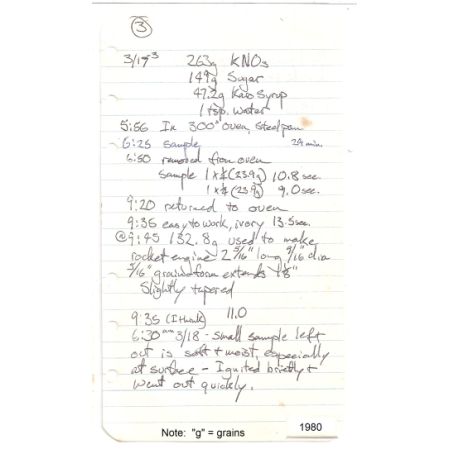 3
3/17 3 263g KNO3
149g Sugar
47.2g Karo Syrup
1 tsp. water
5:56 In 300° oven, steel pan
6:25 sample 29 min.
6:50 removed from oven
sample 1 x (23.9g) 10.8 sec.
1 x (23.9g) 9.0 sec.
9:20 returned to oven
9:35 easy to work, ivory 13.5 sec.
@9:45 132.8g used to make
rocket engine 2 5/16" long 9/16" dia
5/16" grain form extends 1 1/8"
Slightly tapered
9:35 (I think) 11.0
6:30 am 3/18 - small sample left
out is soft + moist, especially
at surface - Ignited briefly +
went out quickly.
Note: "g" = grains
1980